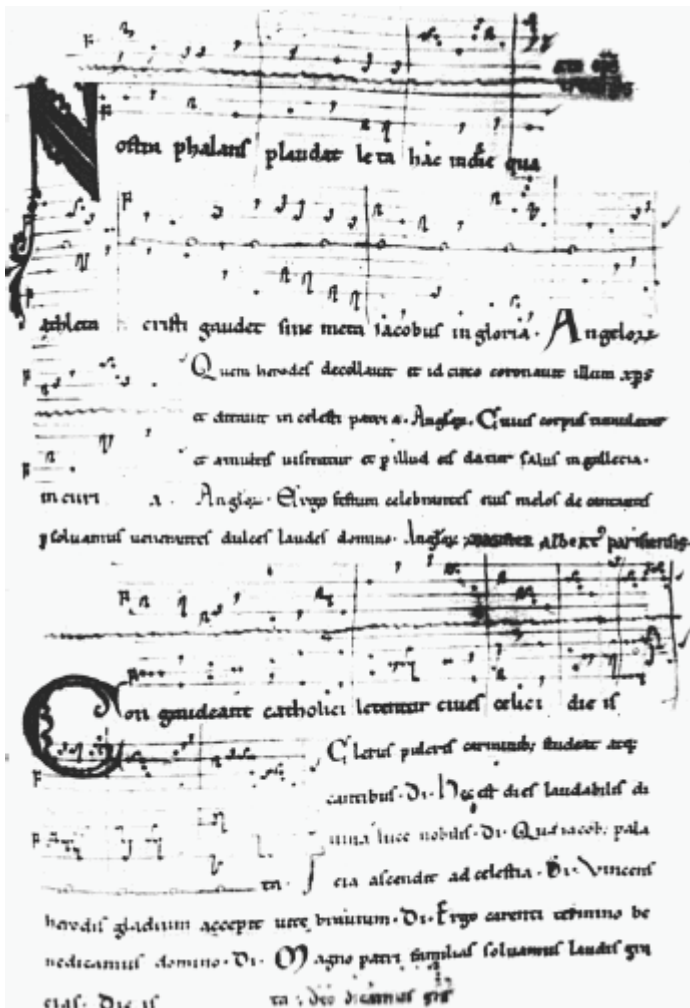 Nostra phalans plaudat leta hac in die qua
athleta cristi gaudet sine meta iacobus in gloria. Angelorum
Quem herodes decollavit et id circo coronavit illum xps
et ditavit in celesti patria. Anglor. Cuius corpus tumulatur
et a multis visitatur et p illud eis datur salus in gallecia.
in curi a. Anglor. Ergo festum celebrantes eius melos decantantes
psolvamus venerantes dulces laudes domino. Anglor magister albert parisiensis
Congaudeant catholici letentur cives celici die is
Clerus pulcris carminib; studeat atq
cantibus. Di. Hec est dies laudabilis di
vina luce nobilis. Di. Qua iacob; pala
ta. cia ascendit ad celestia. Di. Vincens
herodis gladium accepit vite bravium. Di. Ergo carenti termino be
nedicamus domino. Di. Magno patri familias solvamus laudis gra
cias. Die is ta. deo dicamus gras